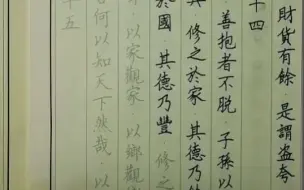 財貨有餘．是謂盗夸
十四
善抱者不脱．子孫以
真．修之於家．其德乃
於國．其德乃豐．修之
以家觀家．以鄉觀
吾何以知天下然哉．以
十五